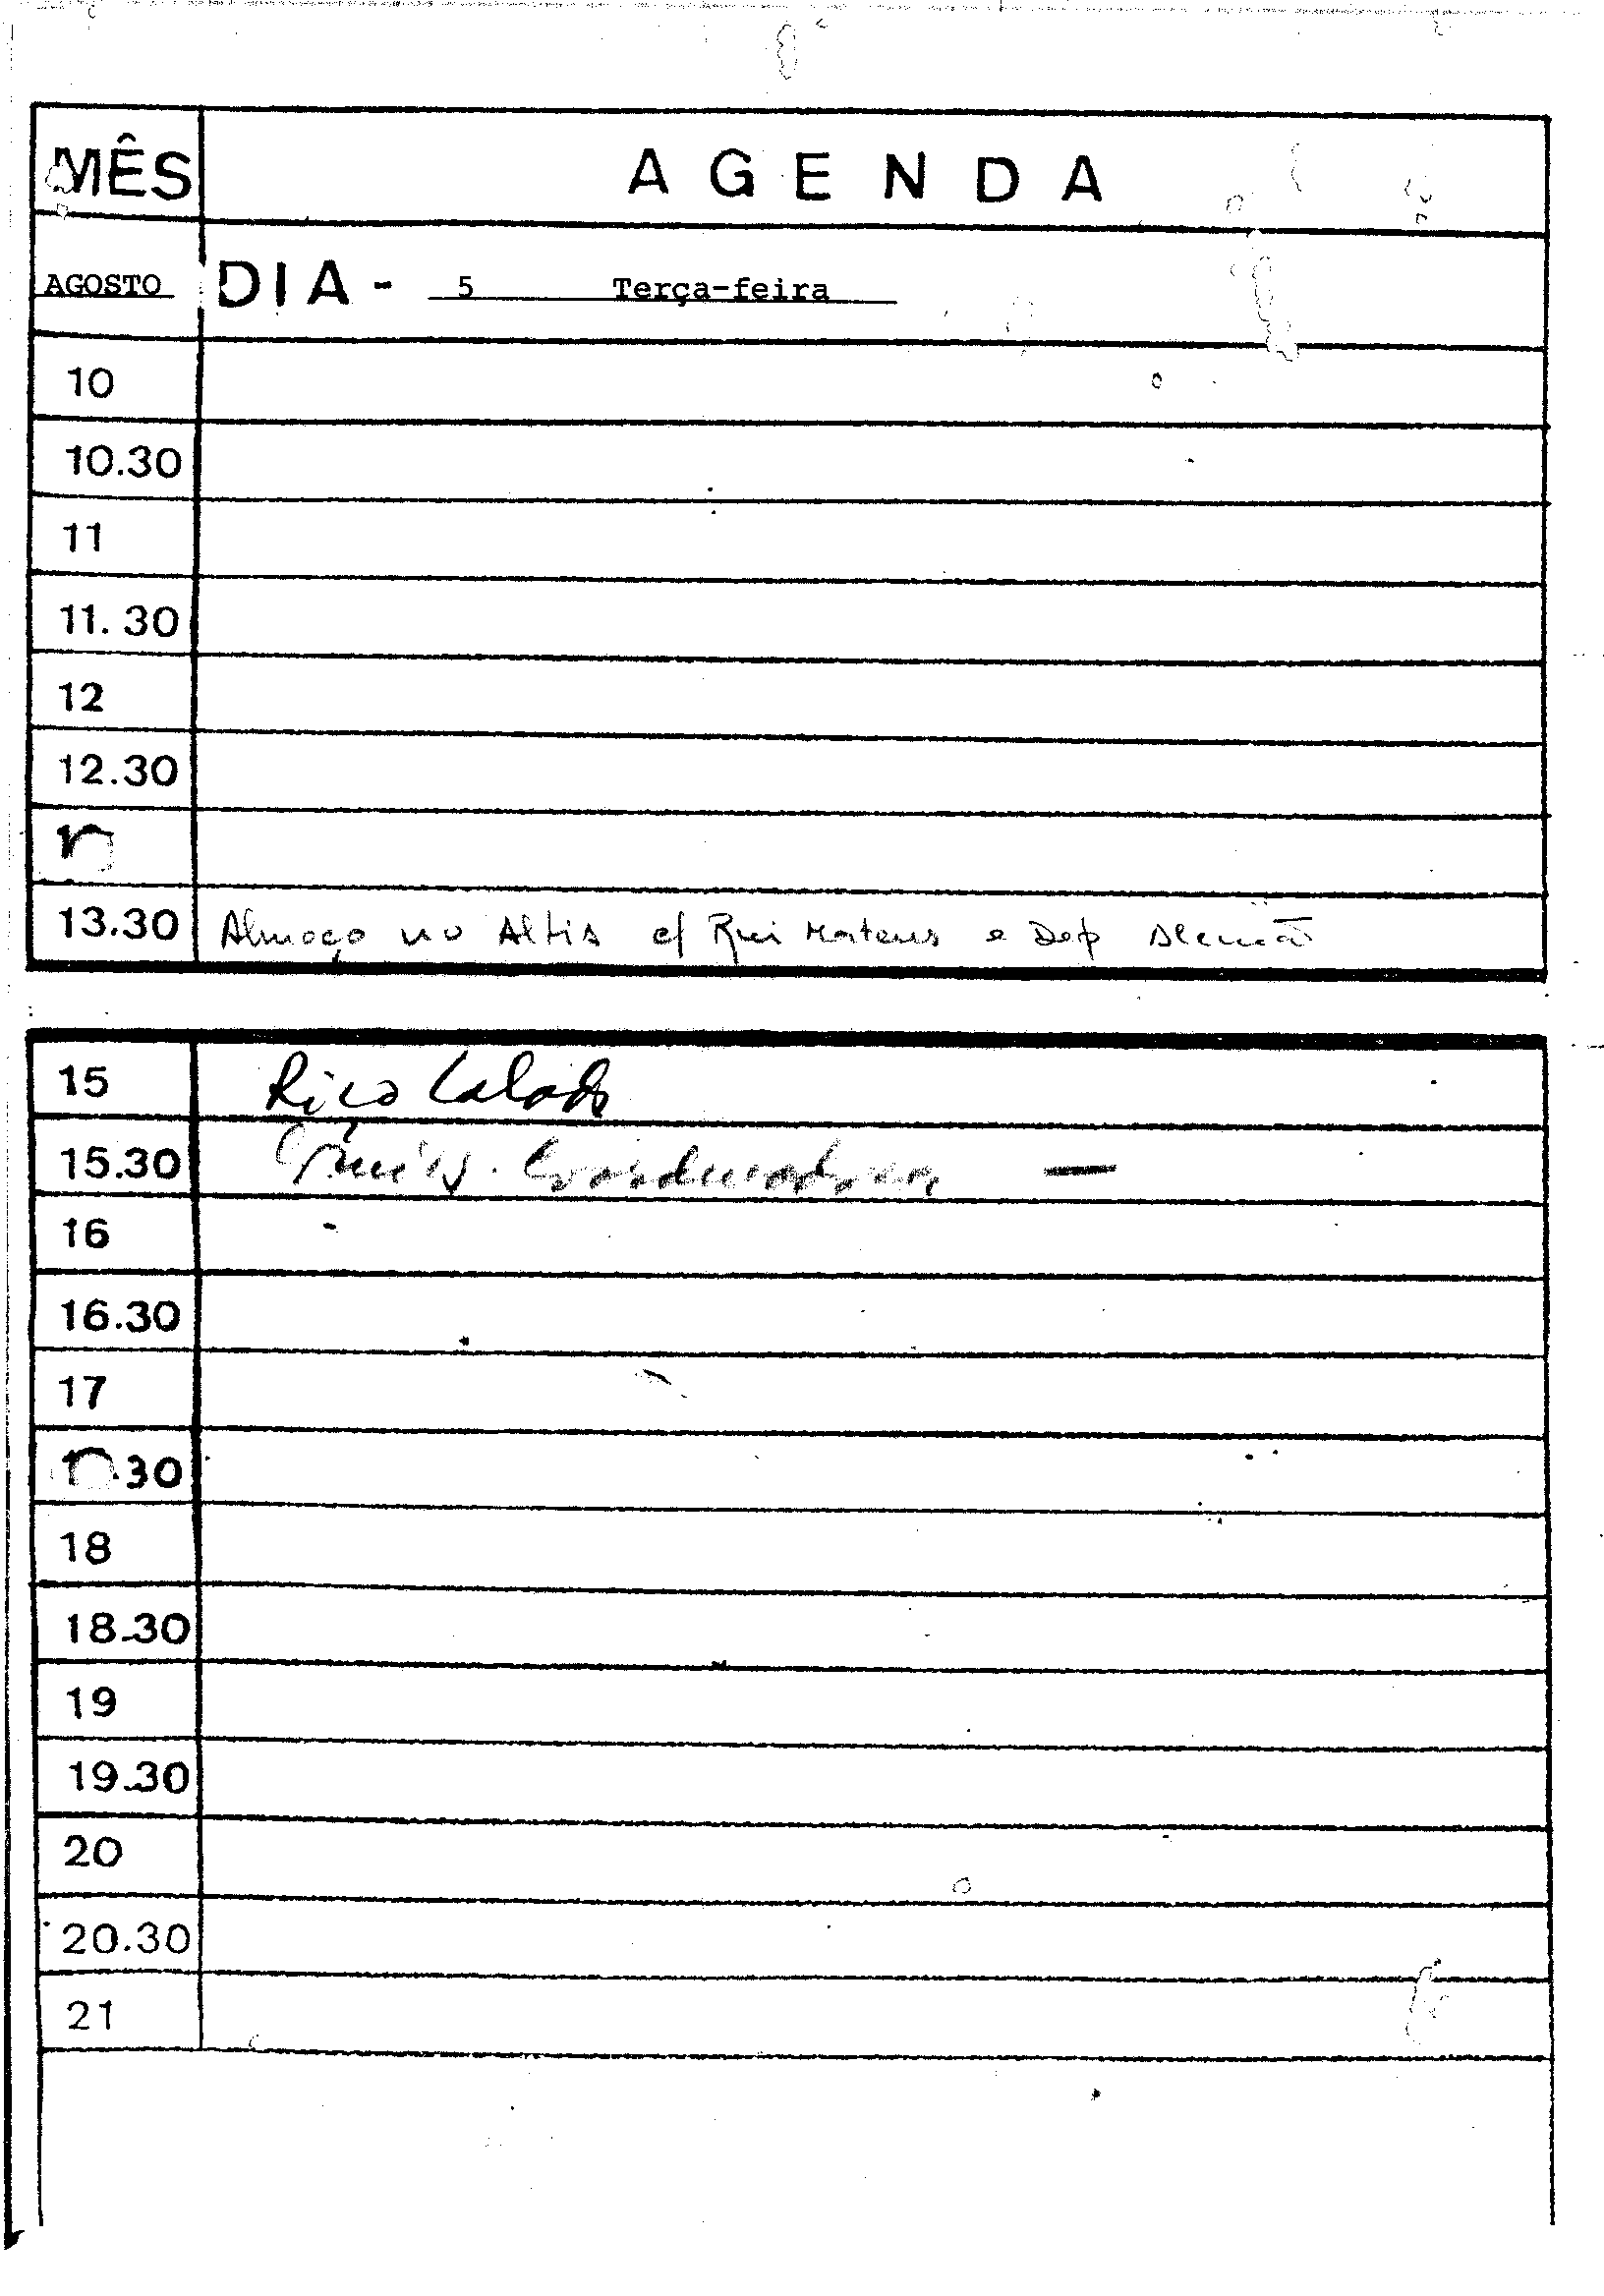 MÊS AGENDA
AGOSTO DIA - 5 Terça-feira
10
10.30
11
11.30
12
12.30
13.30 Almoço no Altis c/ Rui Mateus e Dep Alemão
15 Rico Calado
15.30 Coordenadora —
16
16.30
17
30
18
18.30
19
19.30
20
20.30
21